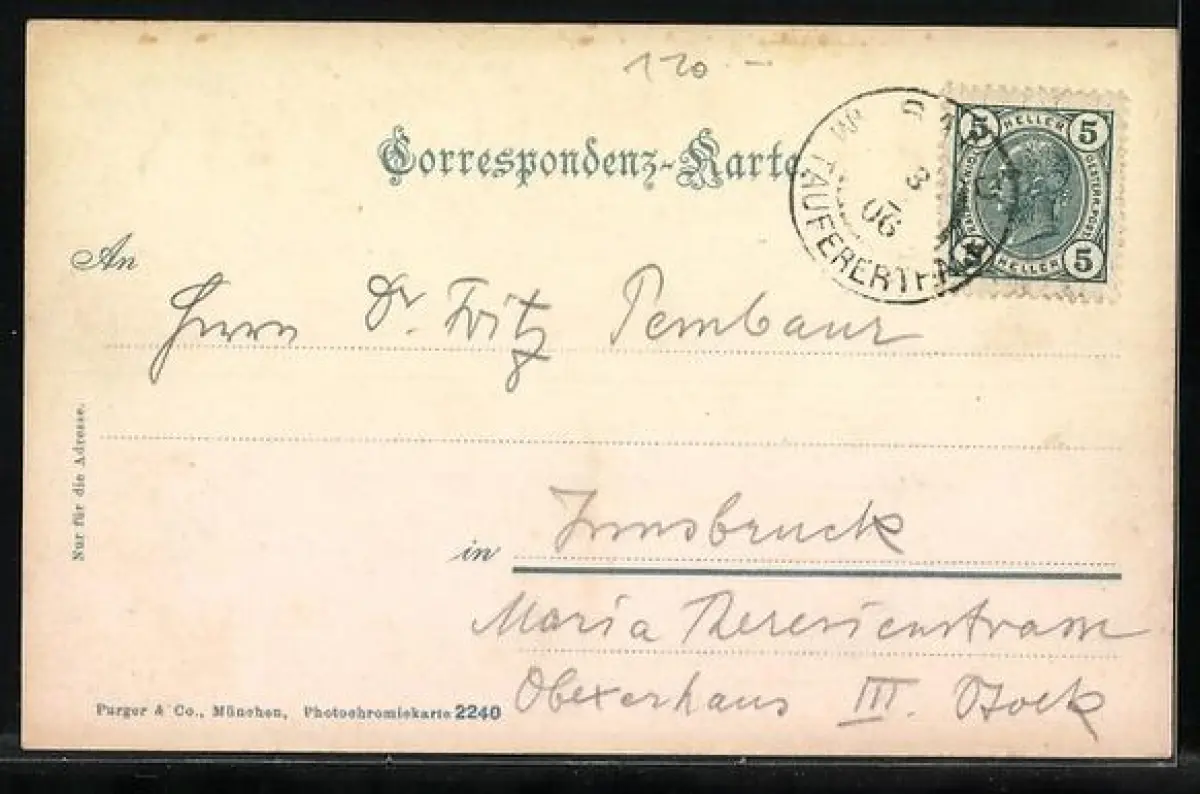 120.-
Correspondenz-Karte
5 HELLER 5
OESTERR. POST
HELLER 5
TAUFERERTHAL
3
06
An
Herrn Dr. Fritz Pembaur
Nur für die Adresse.
in Innsbruck
Maria Theresienstrasse
Obexerhaus III. Stock
Purger & Co., München, Photochromiekarte 2240